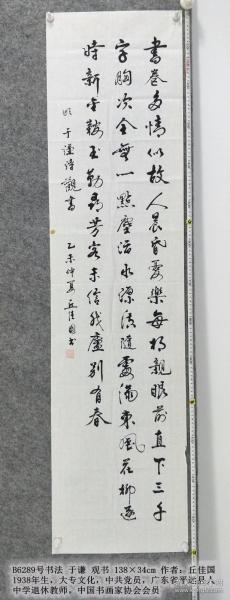 書卷多情似故人晨昏憂樂每相親眼前直下三千
字胸次全無一點塵活水源流隨處滿東風花柳逐
時新金鞍玉勒尋芳客未信我廬別有春
明 于謙詩觀書
乙未仲夏丘佳國书
B6289号书法 于谦 观书 138×34cm 作者：丘佳国
1938年生，大专文化，中共党员，广东省平远县人
中学退休教师，中国书画家协会会员